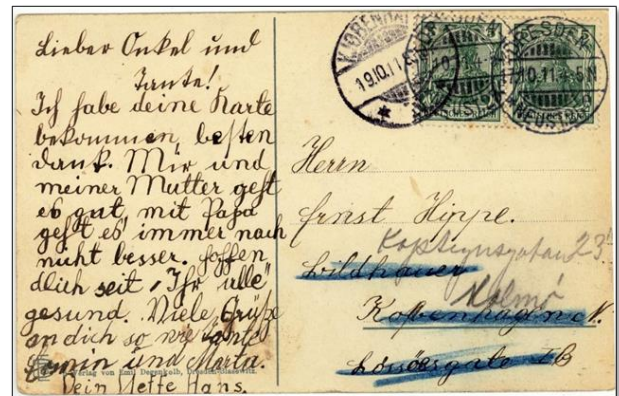 Lieber Onkel und
Tante!
Ich habe deine Karte
bekommen, besten
Dank. Mir und
meiner Mutter geht
es gut, mit Papa
geht es immer noch
nicht besser. Hoffen
dlich seit, Ihr alle
gesund. Viele Grüße
an dich so wie Tante
und Marta.
Dein Neffe Hans.
Verlag von Emil Degenkolb, Dresden-Blasewitz.
KJØBENHAVN
19.10.11
DRESDEN
NEUSTADT
DRESDEN
10.11.4-5N
NEUSTADT
Herrn
Ernst Hippe.
Kaptensgatan 23
Bildhauer
Malmö
Kopenhagen N.